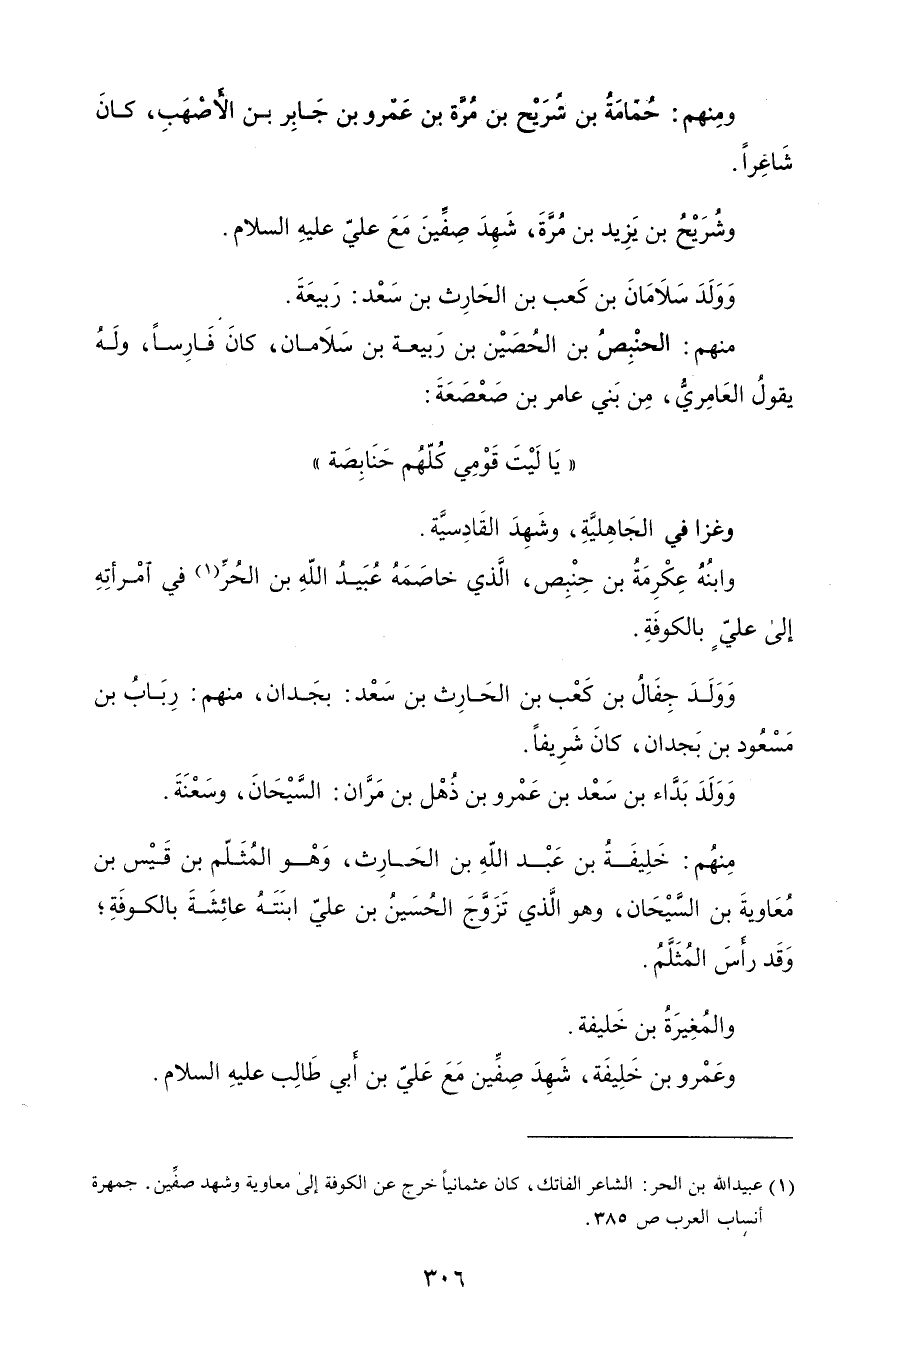 ومِنهم: حُمَامَةُ بن شُرَيْح بن مُرَّة بن عَمْرو بن جَـابِر بـن الأَصْهَبِ، كـانَ
شَاغِراً.
وشُرَيْحُ بن يَزِيد بن مُرَّةَ، شَهِدَ صِفِّينَ مَعَ عليّ عليهِ السلام.
وَوَلَدَ سَلَامَانَ بن كَعب بن الحَارِث بن سَعْد: رَبِيعَةَ.
منهم: الحنْبِصُ بن الحُصَيْن بن رَبيعـة بن سَلَامـان، كانَ فَـارِسـاً، ولَـهُ
يقولُ العَامِرِيُّ، مِن بَني عامر بن صَعْصَعَةَ:
« يَا لَيْتَ قَوْمِي كُلّهُم حَنَابِصَة »
وغزا في الجَاهِليَّةِ، وشَهِدَ القَادِسيَّة.
وابنُهُ عِكْرِمَةُ بن حِنْبِص، الَّذي خاصَمَهُ عُبَيـدُ اللّهِ بن الحُرِّ(١) في ٱمْـرأتِهِ
إلىٰ عليّ بالكوفَةِ.
وَوَلَـدَ حِفَالُ بن كَعْب بن الحَـارِث بن سَعْد: بجَـدان، منهم: رِبَـابُ بن
مَسْعُود بن بَجدان، كانَ شَرِيفاً.
وَوَلَدَ بَدَّاء بن سَعْد بن عَمْرو بن ذُهْل بن مَرَّان: السَّيْحَانَ، وسَعْنَةَ.
مِنهُم: خَلِيفَـةُ بن عَبْـد اللّهِ بن الحَـارِث، وَهْـو المُثَلّم بن قَيْس بن
مُعَاويةَ بن السَّيْحَان، وهو الَّذي تَزوَّجَ الحُسَينُ بن عليّ ابنَتَـهُ عائِشَـةَ بالكـوفَةِ؛
وَقَد رأَسَ المُثَلَّمُ.
والمُغِيرَةُ بن خَليفة.
وعَمْرو بن خَلِيفَة، شَهِدَ صِفِّين مَعَ عَليّ بن أَبي طَالِب عليهِ السلام.
(١) عبيدالله بن الحر: الشاعر الفاتك، كان عثمانياً خرج عن الكوفة إلىٰ معاوية وشهد صفّين. جمهرة
أنساب العرب ص ٣٨٥.
٣٠٦